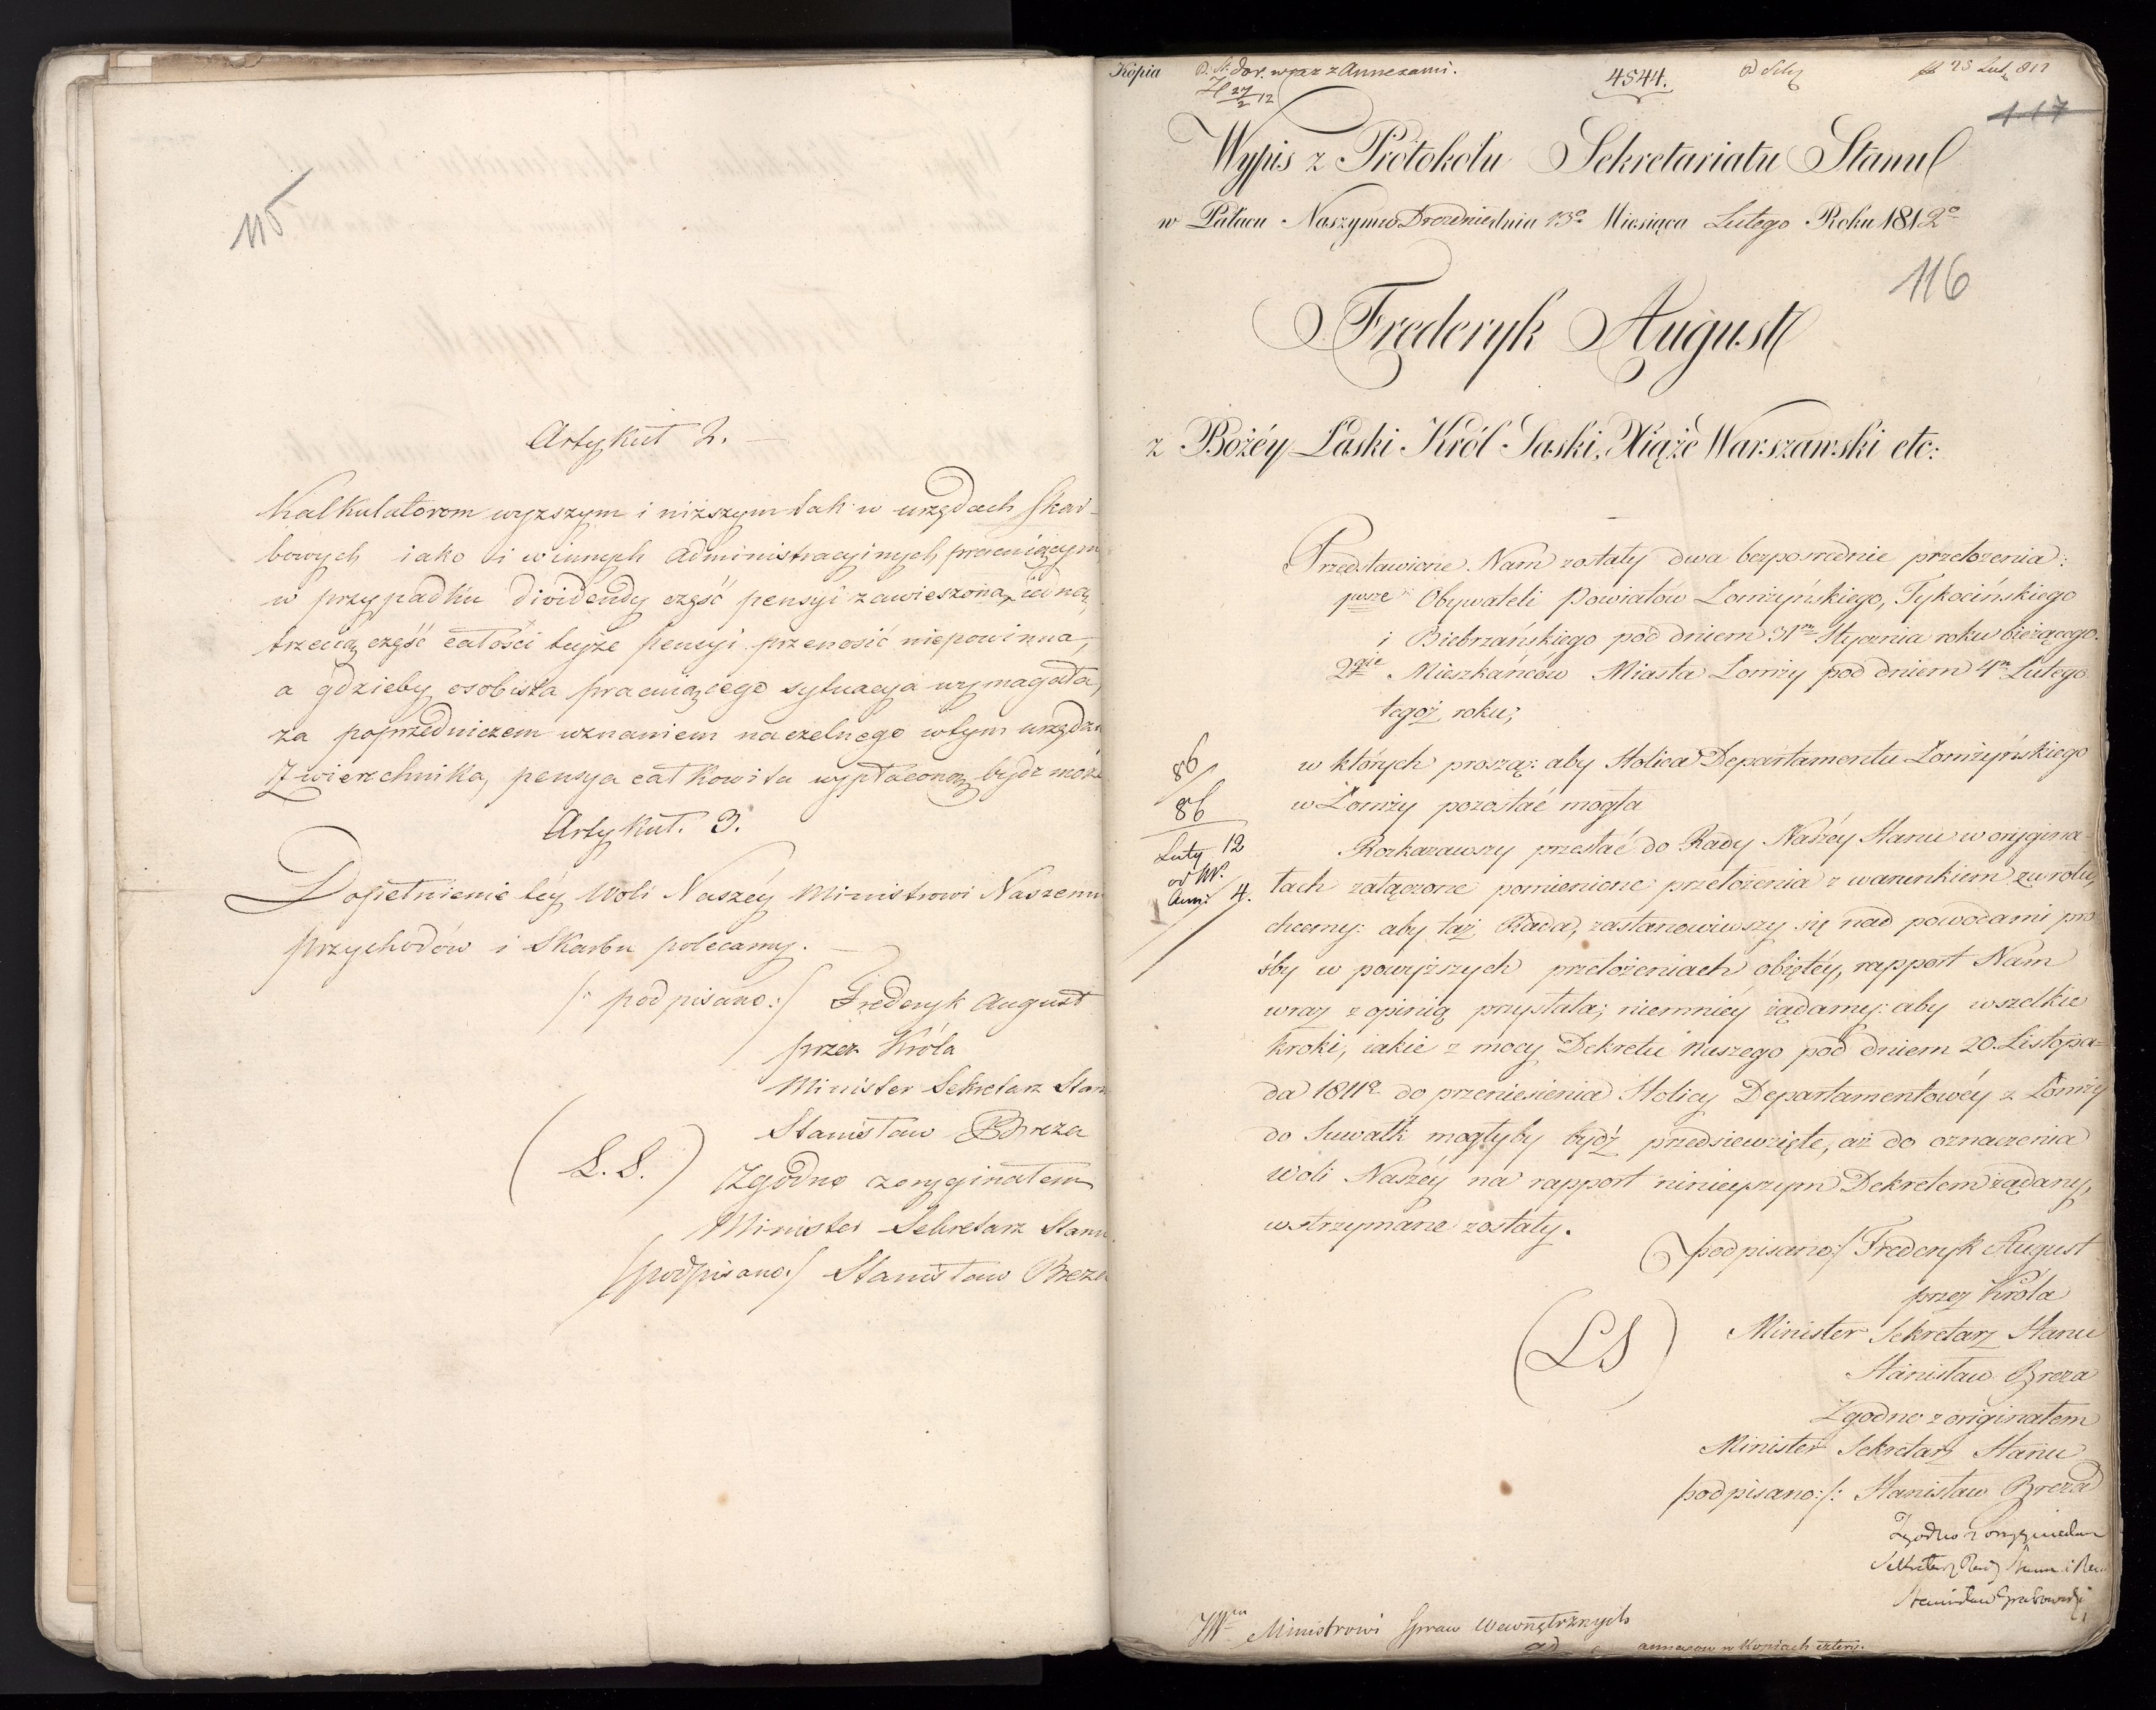 115
Artykuł 2.
Kalkulatorom wyzszym i niższym tak w urzędach Skar-
bowych iako i w innych administracyinych pracuiącym
w przypadku dividendy część pensyi zawieszona, iedną
trzecią część całości teyże pensyi przenosić niepowinna,
a gdzieby osobista pracuiącego sytuacya wymagała,
za poprzedniczem uznaniem naczelnego wtym urzędzi
Zwierzchnika, pensya całkowita wypłaconą bydź może
Artykuł. 3.
Dopełnienie téy Woli Naszéy Ministrowi Naszemu
przychodów i Skarbu polecamy.
/: podpisano:/ Frederyk August
przez Króla
Minister Sekretarz Stan
(L. S.) Stanisław Breza
Zgodno z oryginałem
Minister Sekretarz Stanu
/podpisano:/ Stanisław Breza
Kopia wraz z Annexami.
27/2 12
4544.
117
Wypis z Protokołu Sekretariatu Stanu
w Pałacu Naszym w Dreznie dnia 13o Miesiąca Lutego Roku 1812o
116
Frederyk August
z Bożéy Łaski Król Saski, Xiążę Warszawski etc:
Przedstawione Nam zostały dwa bezposrednie przełozenia:
pwsze Obywateli Powiatów Łomżyńskiego, Tykocińskiego
i Biebrzańskiego pod dniem 31m Stycznia roku bieżącego.
2gie Mieszkańców Miasta Łomży pod dniem 4m Lutego
tegoż roku;
w których proszą: aby Stolica Departamentu Łomżyńskiego
w Łomży pozostać mogła
86
86
Luty 12
4.
Rozkazawszy przesłać do Rady Naszéy Stanu w orygina-
łach załączone pomienione przełożenia z warunkiem zwrotu,
chcemy: aby taż Rada, zastanowiwszy się nad powodami pro
śby w powyższych przełożeniach obiętéy, rapport Nam
wraz z opinią przysłała; niemniéy żądamy: aby wszelkie
kroki, iakie z mocy Dekretu Naszego pod dniem 20. Listopa=
da 1811o do przeniesienia Stolicy Departamentowéy z Łomży
do Suwałk mogłyby bydź przedsiewzięte, aż do oznaczenia
Woli Naszéy na rapport ninieyszym Dekretem żądany,
wstrzymane zostały.
/podpisano:/ Frederyk August
przez Króla
(LS) Minister Sekretarz Stanu
Stanisław Breza
Zgodno z originałem
Minister Sekretarz Stanu
podpisano:/: Stanisław Breza
Zgodno z oryginałem
Sekretarz Rady Stanu i
Stanisław Grabowski
JWu Ministrowi Spraw Wewnętrznych
annexow w Kopiach cztery.